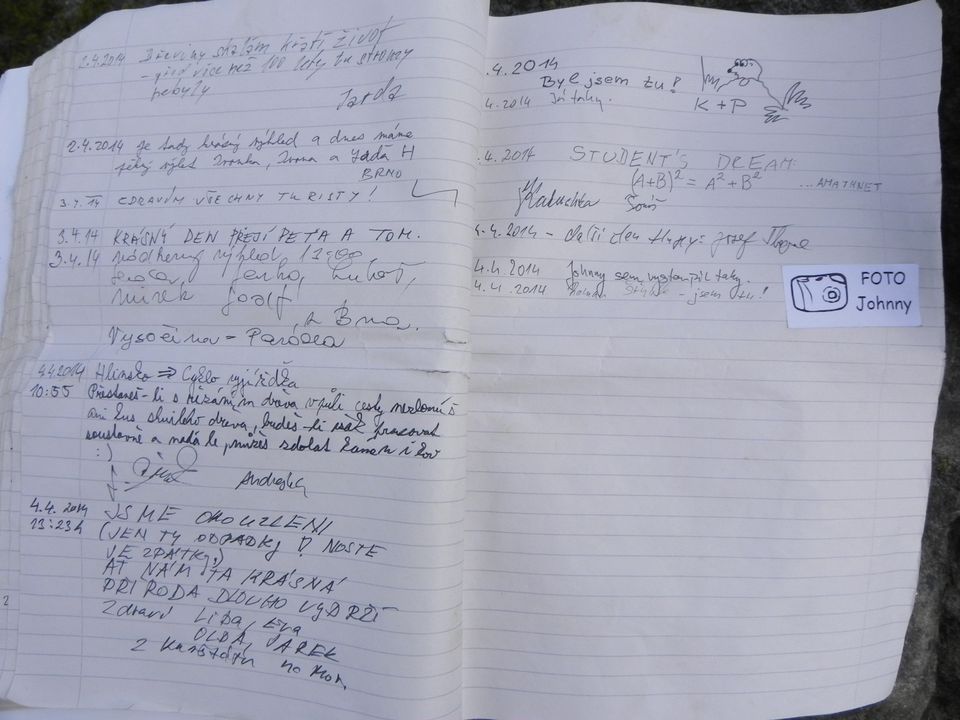 2.4.2014 Dřeviny skalám krátí život
- před více než 100 lety tu stromy
nebyly
Jarda
2.4.2014 je tady krásný výhled a dnes máme
pěkný výlet Ivonka, Ivona a H
BRNO
3.4.14 ZDRAVÍM VŠECHNY TURISTY!
3.4.14 KRÁSNÝ DEN PŘEJÍ PETA A TOM.
3.4.14 nádherný výhled,
Lenka, Luboš,
Mirek Josef
z Brna.
Vysočina = Paráda
4.4.2014 Hlinsko ⇒ Cyklo vyjížďka
10:55 Přestaneš-li s řezáním dřeva v půli cesty nezlomíš
ani kus shnilého dřeva, budeš-li však pracovat
soustavně a nadále, můžeš zdolat kámen i kov
:)
Andrejka
4.4.2014 JSME OKOUZLENI
13:23h (JEN TY ODPADKY! NOSTE
JE ZPÁTKY,)
AŤ NÁM TA KRÁSNÁ
PŘÍRODA DLOUHO VYDRŽÍ
Zdraví LÍDA, EVA
OLDA, JAREK
2
.4.2014
Byl jsem tu!
4.2014 Já taky.
K + P
.4.2014 STUDENT'S DREAM:
(A+B)² = A² + B²
...AMATHNET
4.4.2014 - další den Josef
4.4.2014 Johnny sem vystoupil taky.
4.4.2014 - jsem tu!
FOTO
Johnny
2